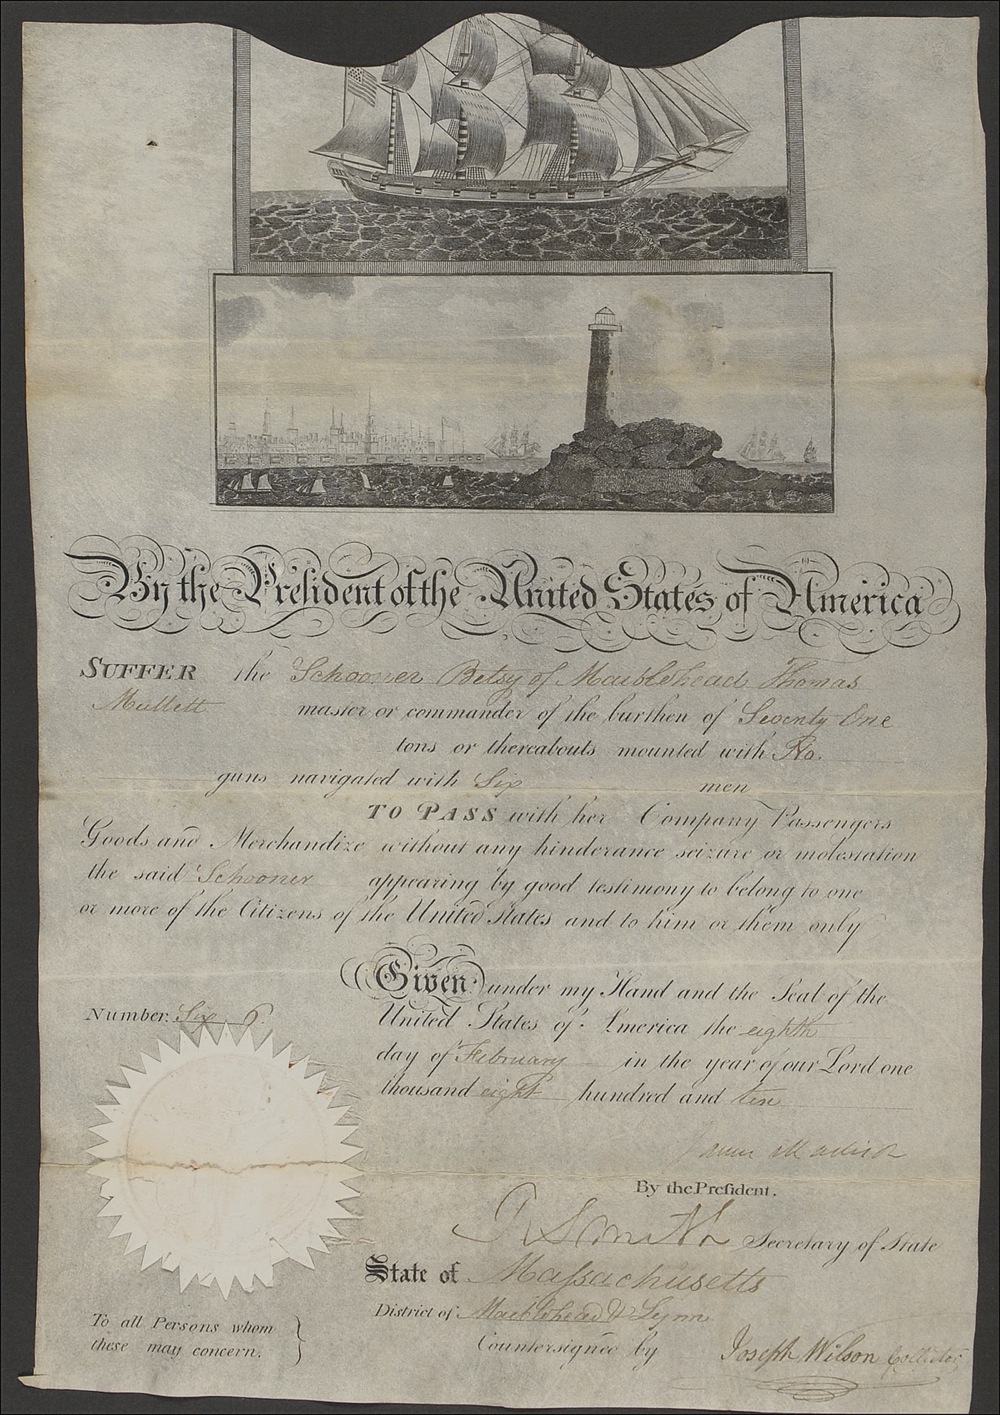 By the President of the United States of America
SUFFER the Schooner Betsy of Marblehead Thomas
Mullett master or commander of the burthen of Seventy One
tons or thereabouts mounted with No.
guns navigated with Six men
TO PASS with her Company Passengers
Goods and Merchandize without any hinderance seizure or molestation
the said Schooner appearing by good testimony to belong to one
or more of the Citizens of the United States and to him or them only
Given under my Hand and the Seal of the
Number. Six. 6. United States of America the eighth
day of February in the year of our Lord one
thousand eight hundred and ten
James Madison
By the President.
R Smith Secretary of State
State of Massachusetts
District of Marblehead & Lynn
To all Persons whom
these may concern.
Countersigned by Joseph Wilson Collector